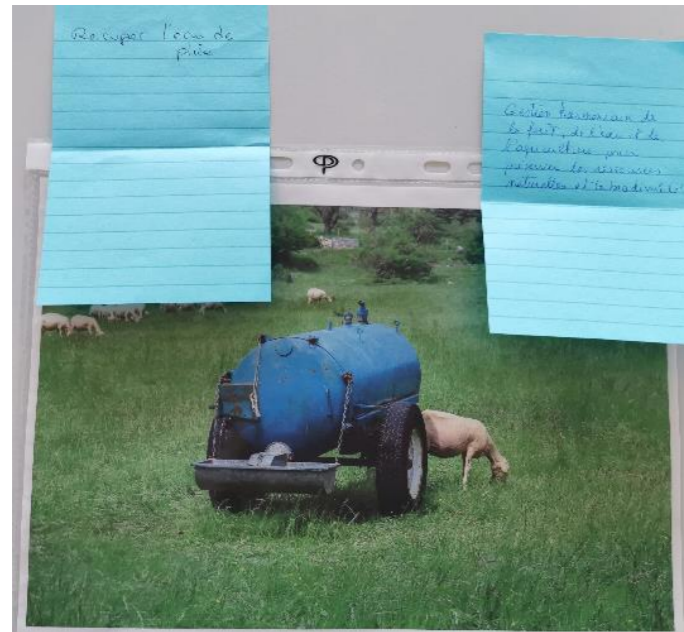 Récuper l'eau de
pluie
Gestion harmonieuse de
la forêt, de l'eau et de
l'agriculture pour
préserver les ressources
naturelles et la biodiversité